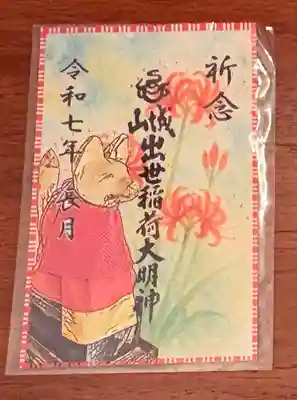 祈念
城山出世稲荷大明神
令和七年 長月